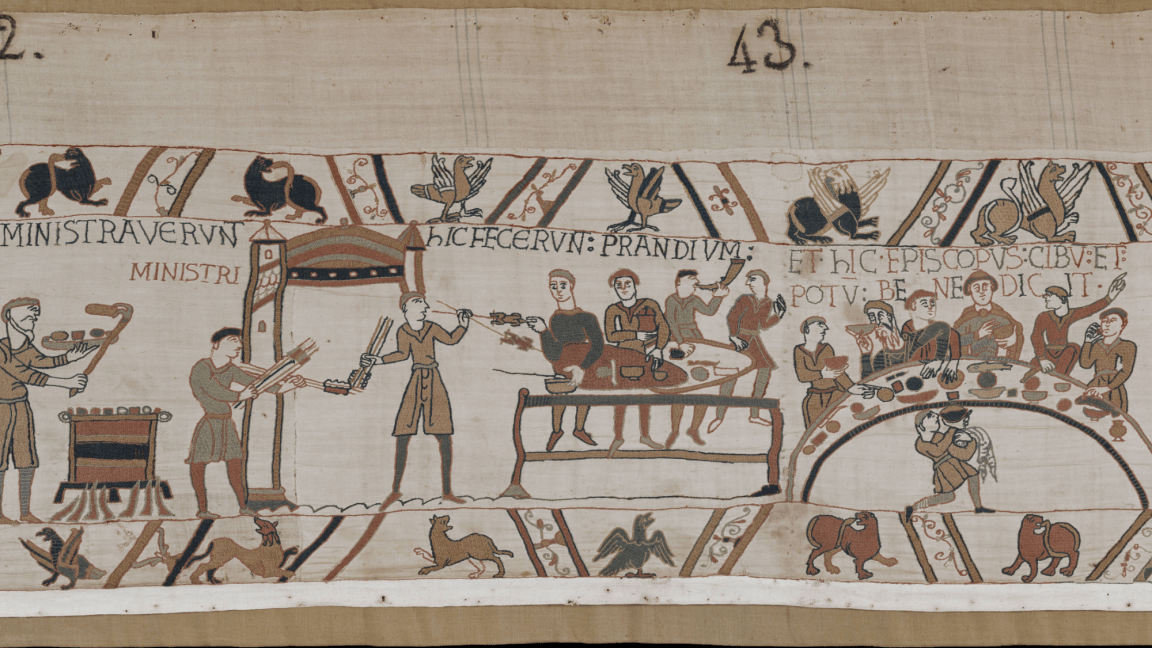 2.
43.
MINISTRAVERVN
MINISTRI
hIC FECERVN: PRANDIVM:
ET hIC·EPISCOPVS:CIBV:ET:
POTV: BE NE DIC IT·